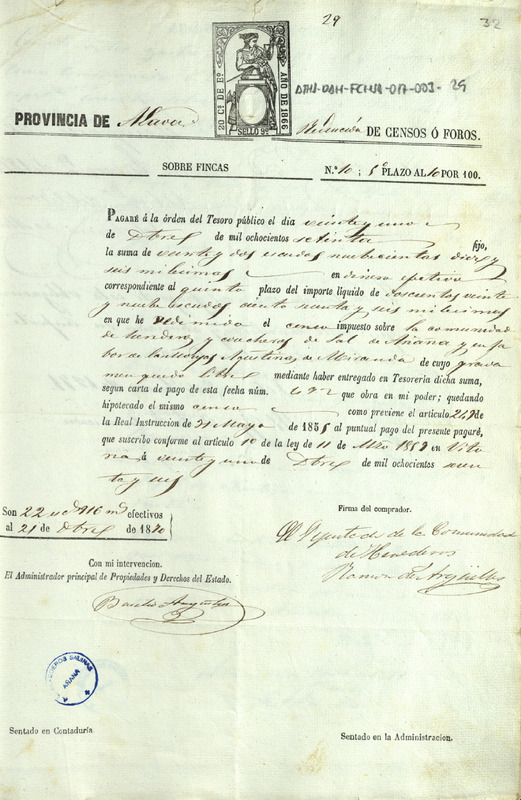 29
32
20 Cs DE Eo
AÑO DE 1866
SELLO 9º
PROVINCIA DE Alava
Redención DE CENSOS Ó FOROS.
SOBRE FINCAS
N.º 10 ; 5º PLAZO AL 10 POR 100.
PAGARÉ á la órden del Tesoro público el dia veinte y uno
de Dbre de mil ochocientos setenta fijo,
la suma de veinte y dos escudos nuebecientas diez y
seis milesimas en dinero efetivo
correspondiente al quinto plazo del importe líquido de doscientos veinte
y nuebe escudos ciento senta y seis milesimas
en que he redimido el censo impuesto sobre la comunidad
de heredros y cocheras de Sal de Añana y en fa
bor de las Monjas Agustinas de Miranda de cuyo grava
men quedo libre mediante haber entregado en Tesorería dicha suma,
segun carta de pago de esta fecha núm. 692 que obra en mi poder; quedando
hipotecado el mismo censo como previene el artículo 249 de
la Real Instruccion de 31 Mayo de 1855 al puntual pago del presente pagaré,
que suscribo conforme al artículo 10 de la ley de 11 de Mzo 1859 en Vito
ria á veinte y uno de Dbre de mil ochocientos sesen
ta y seis
Son 22 escd 916 ms efectivos
al 21 de Dbre de 1870
Firma del comprador.
El Diputado de la Comunidad
de Herederos
Ramon de Argüelles
Con mi intervencion.
El Administrador principal de Propiedades y Derechos del Estado.
SALINAS
AÑANA
Sentado en Contaduría.
Sentado en la Administracion.